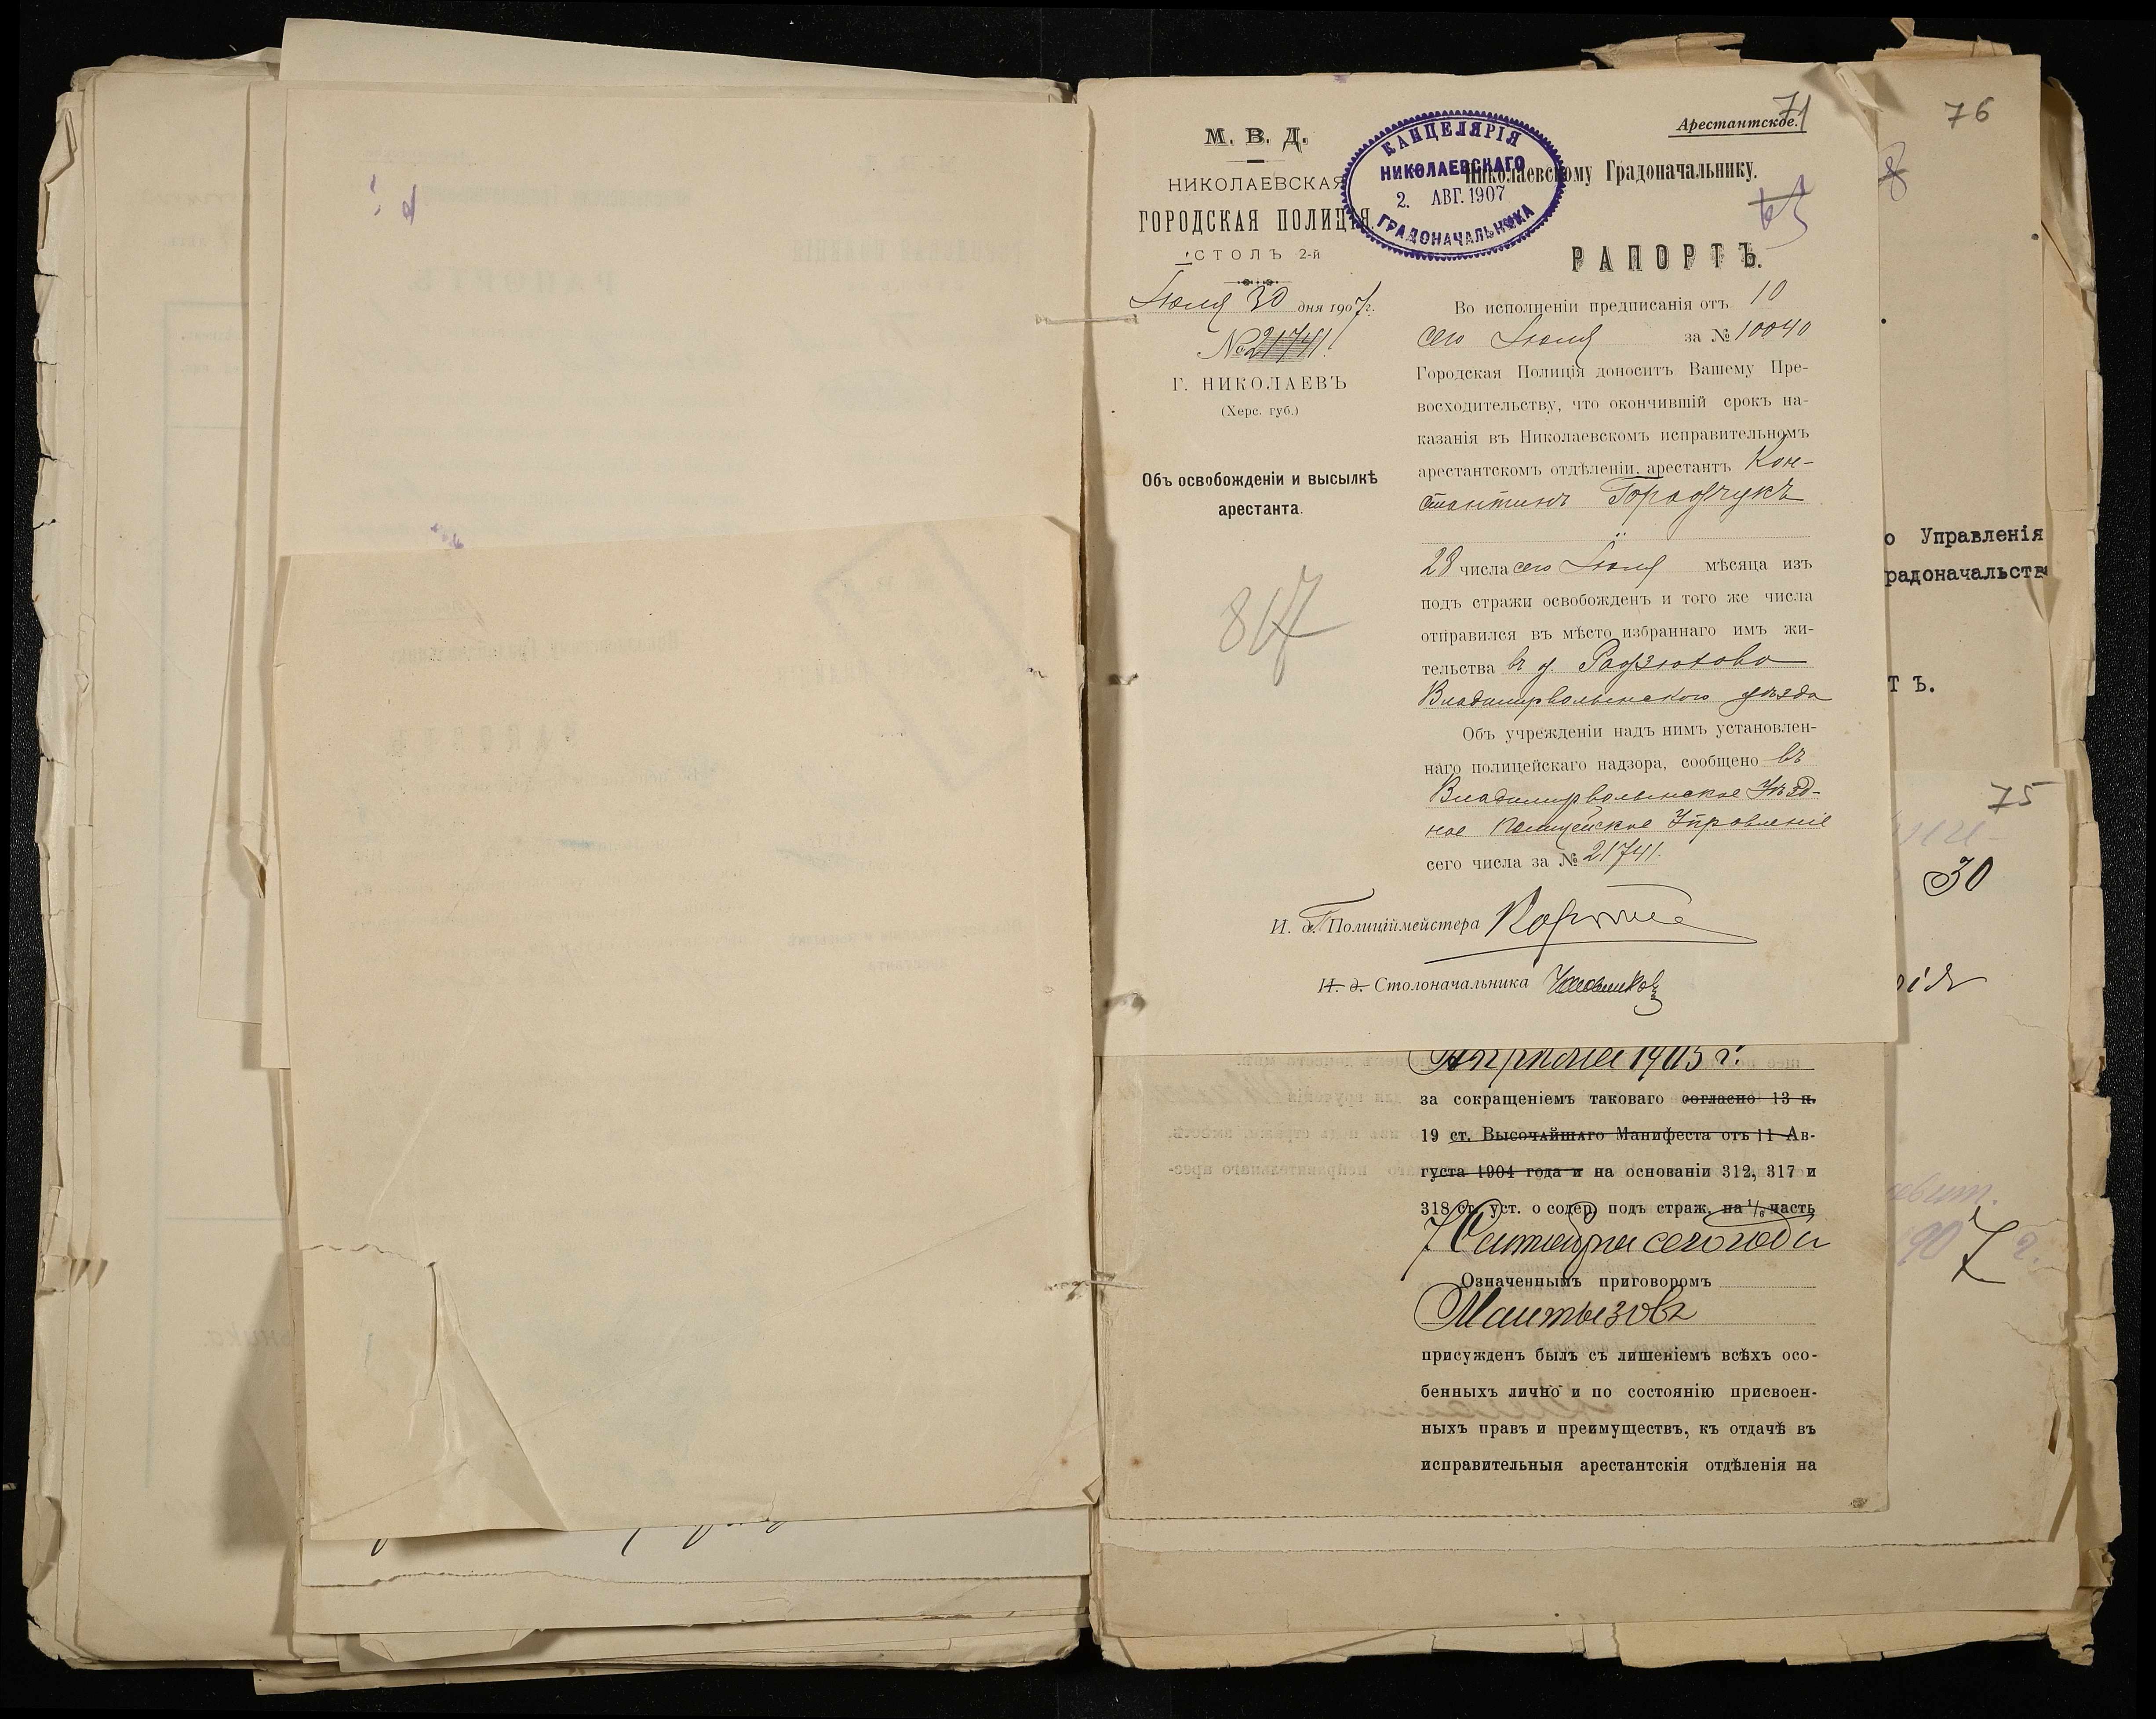 М. В. Д.
НИКОЛАЕВСКАЯ
ГОРОДСКАЯ ПОЛИЦІЯ.
СТОЛЪ 2-й
Іюля 30 дня 1907 г.
№ 21741
Г. НИКОЛАЕВЪ
(Херс. губ.)
Объ освобожденіи и высылкѣ
арестанта.
817
КАНЦЕЛЯРІЯ
НИКОЛАЕВСКАГО
2. АВГ. 1907
ГРАДОНАЧАЛЬНИКА
71
Арестантское.
Николаевскому Градоначальнику.
РАПОРТЪ.
Во исполненіи предписанія отъ 10
сего Іюля за № 10040
Городская Полиція доноситъ Вашему Пре-
восходительству, что окончившій срокъ на-
казанія въ Николаевскомъ исправительномъ
арестантскомъ отдѣленіи, арестантъ Кон-
стантинъ
28 числа сего Іюля мѣсяца изъ
подъ стражи освобожденъ и того же числа
отправился въ мѣсто избраннаго имъ жи-
тельства въ д. Радзюхово
Владимирволынскаго уѣзда
Объ учрежденіи надъ нимъ установлен-
наго полицейскаго надзора, сообщено въ
Владимирволынское Уѣзд-
ное Полицейское Управленіе
сего числа за № 21741.
И. д. Полиціймейстера
И. д. Столоначальника
Апрѣля 1905 г.
за сокращеніемъ таковаго согласно 13 п.
19 ст. Высочайшаго Манифеста отъ 11 Ав-
густа 1904 года и на основаніи 312, 317 и
318 ст. уст. о содер. подъ страж. на 1/6 часть
7 Октября сего года
Означеннымъ приговоромъ
Мантызовъ
присужденъ былъ съ лишеніемъ всѣхъ осо-
бенныхъ лично и по состоянію присвоен-
ныхъ правъ и преимуществъ, къ отдачѣ въ
исправительныя арестантскія отдѣленія на
76
о Управленія
радоначальства
ТЪ.
75
30